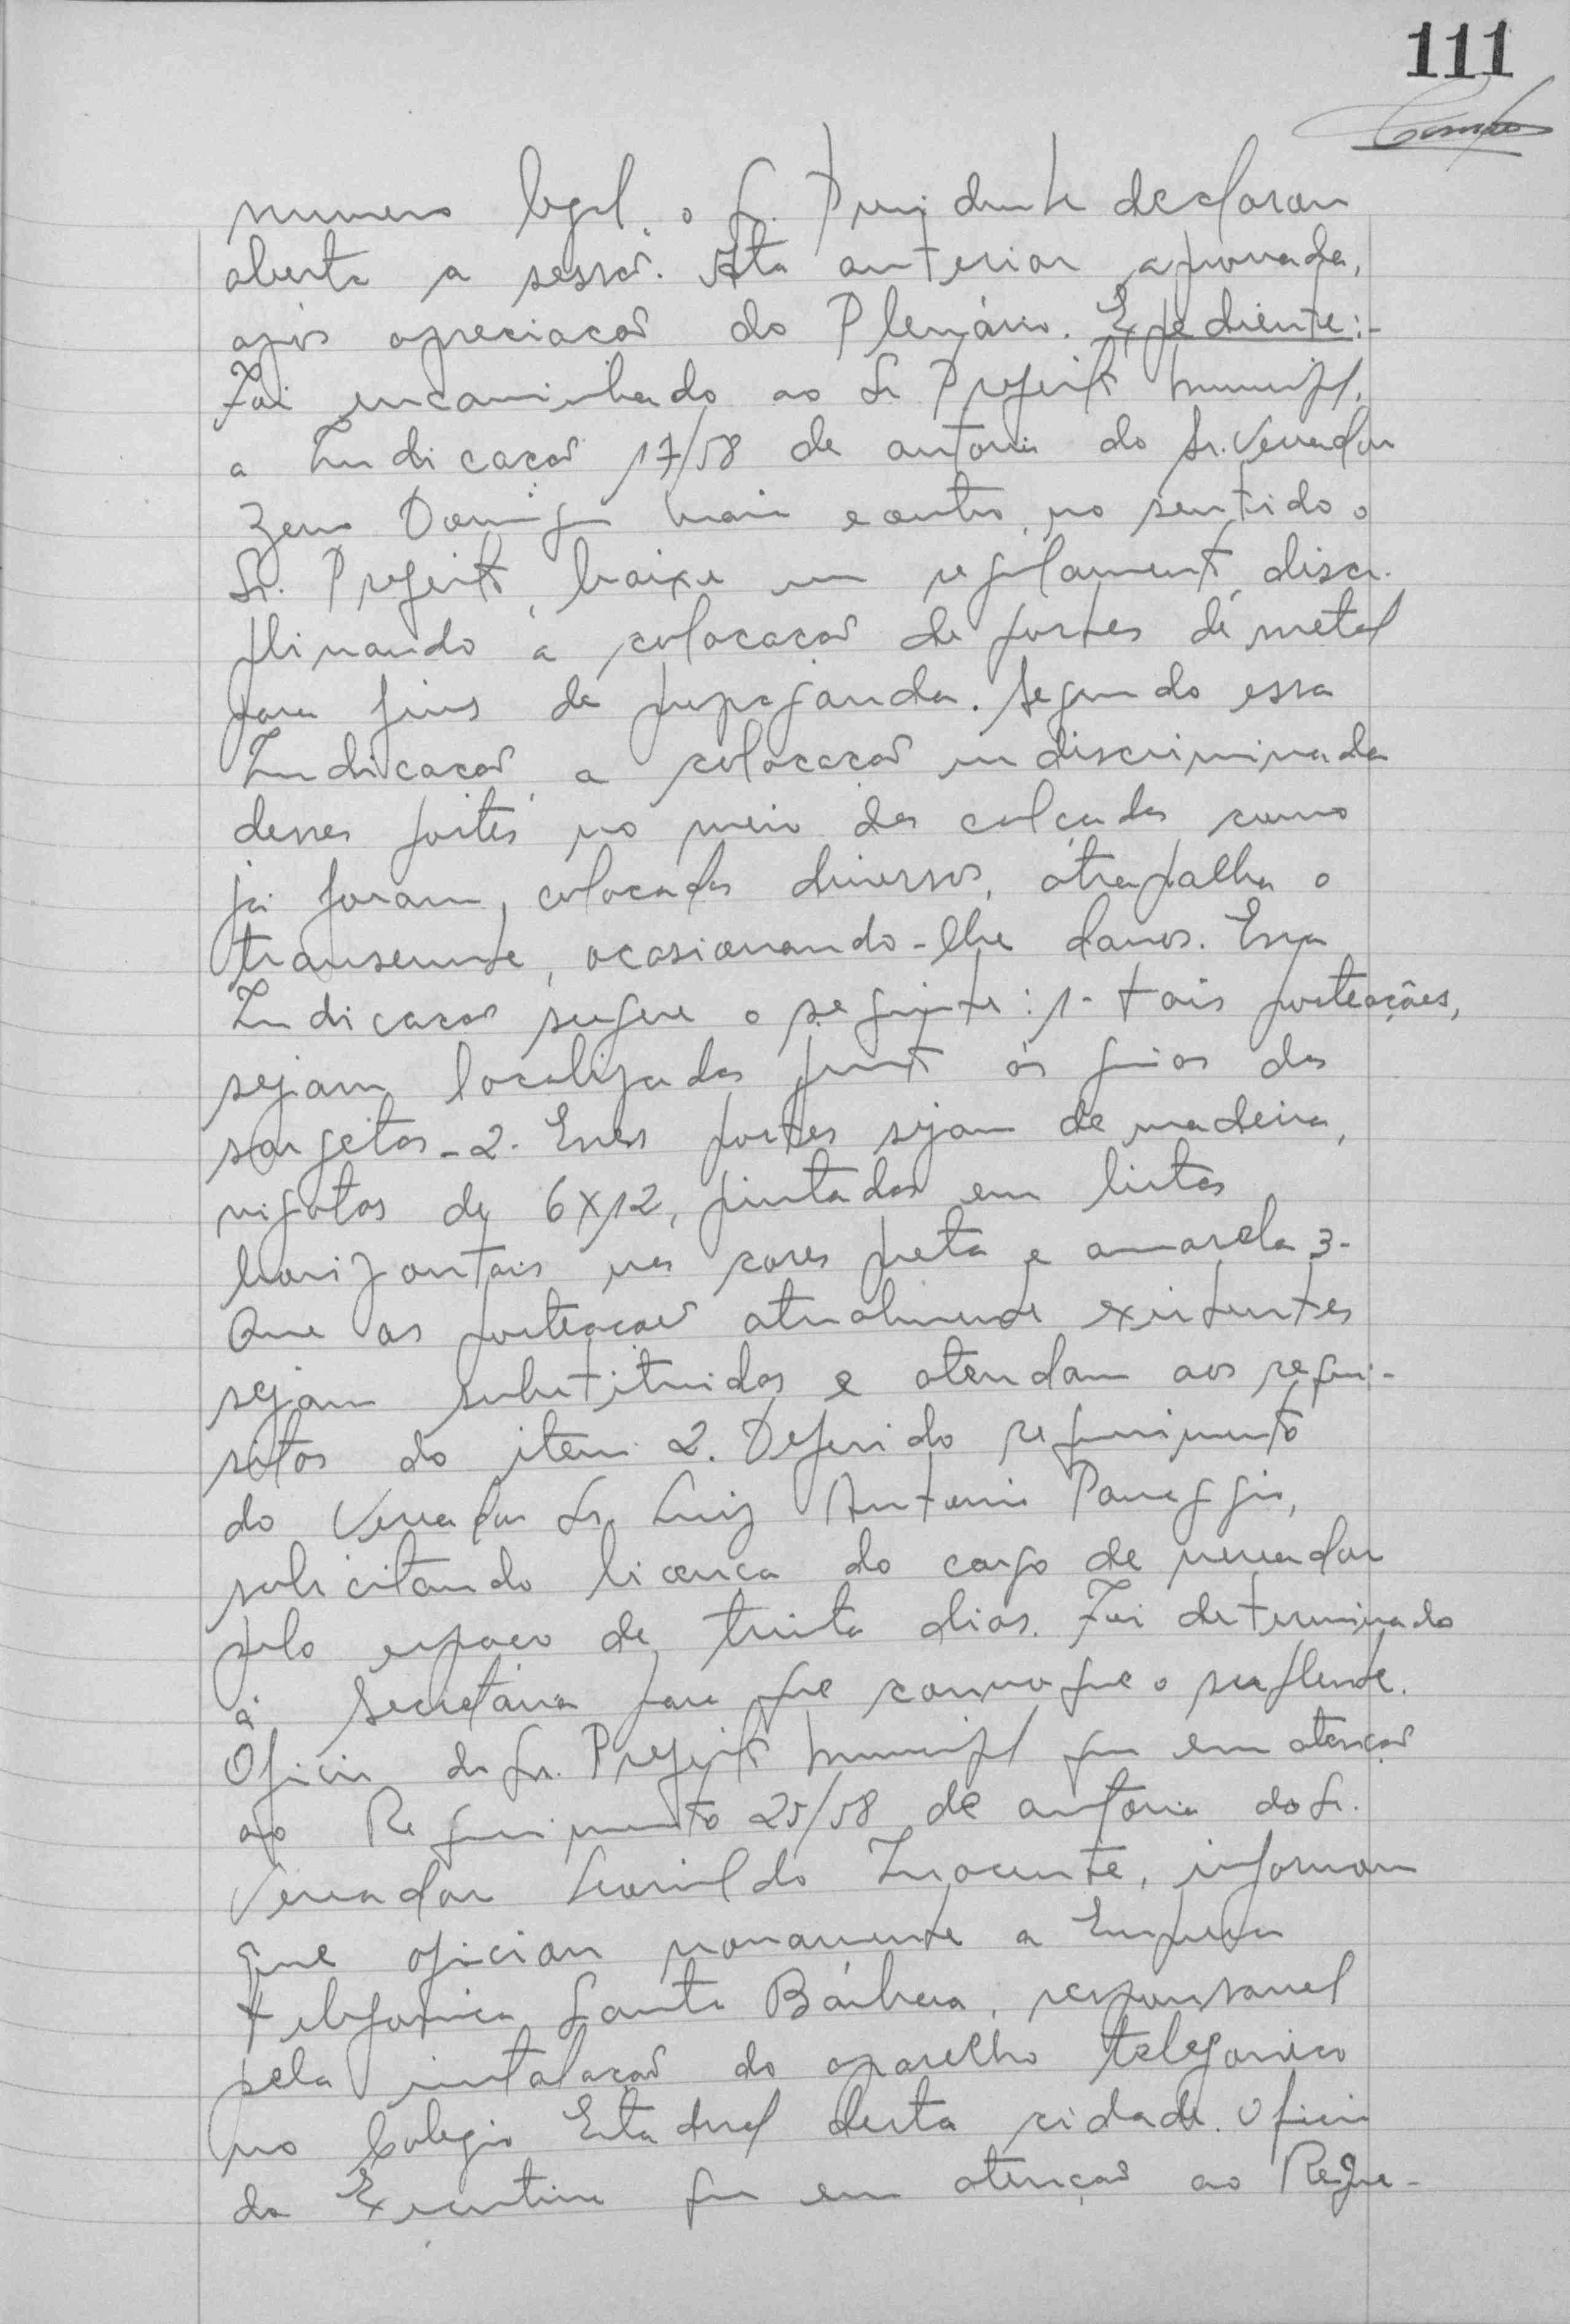 111
numero legal, o Sr. Presidente declarou
aberta a sessão. Ata anterior aprovada,
após apreciação do Plenário. Expediente:-
Foi encaminhado ao Sr Prefeito Municipal,
a Indicação 17/58 de autoria do Sr. Vereador
Zeno Domingos Maia e outro, no sentido o
Sr. Prefeito, baixe um regulamento, disci-
plinando a colocação de postes de metal
para fins de propaganda. Segundo essa
Indicação, a colocação indiscriminada
desses postes no meio das calçadas como
já foram, colocadas diversos, atrapalha o
transeunte, ocasionando-lhe danos. Essa
Indicação sugere o seguinte: 1- tais posteações,
sejam localizadas junto ás guias das
sargetas - 2. Esses postes sejam de madeira,
vigotas de 6x12, pintadas em listas
horizontais nas cores preta e amarela 3-
Que as posteações atualmente existentes
sejam substituidas e atendam aos requi-
sitos do item 2. Deferido requerimento
do Vereador Sr. Luiz Antonio Panaggio,
solicitando licença do cargo de vereador
pelo espaço de trinta dias. Foi determinado
á Secretária para que convoque o suplente.
Oficio do Sr. Prefeito Municipal que em atenção
ao Requerimento 25/58 de autoria do Sr.
Vereador Leonildo Inocente, informou
que oficiou novamente a Empresa
telefonica Santa Bárbara, responsavel
pela instalação do aparelho telefonico
no Colegio Estadual desta cidade. Oficio
do Executivo que em atenção ao Reque-